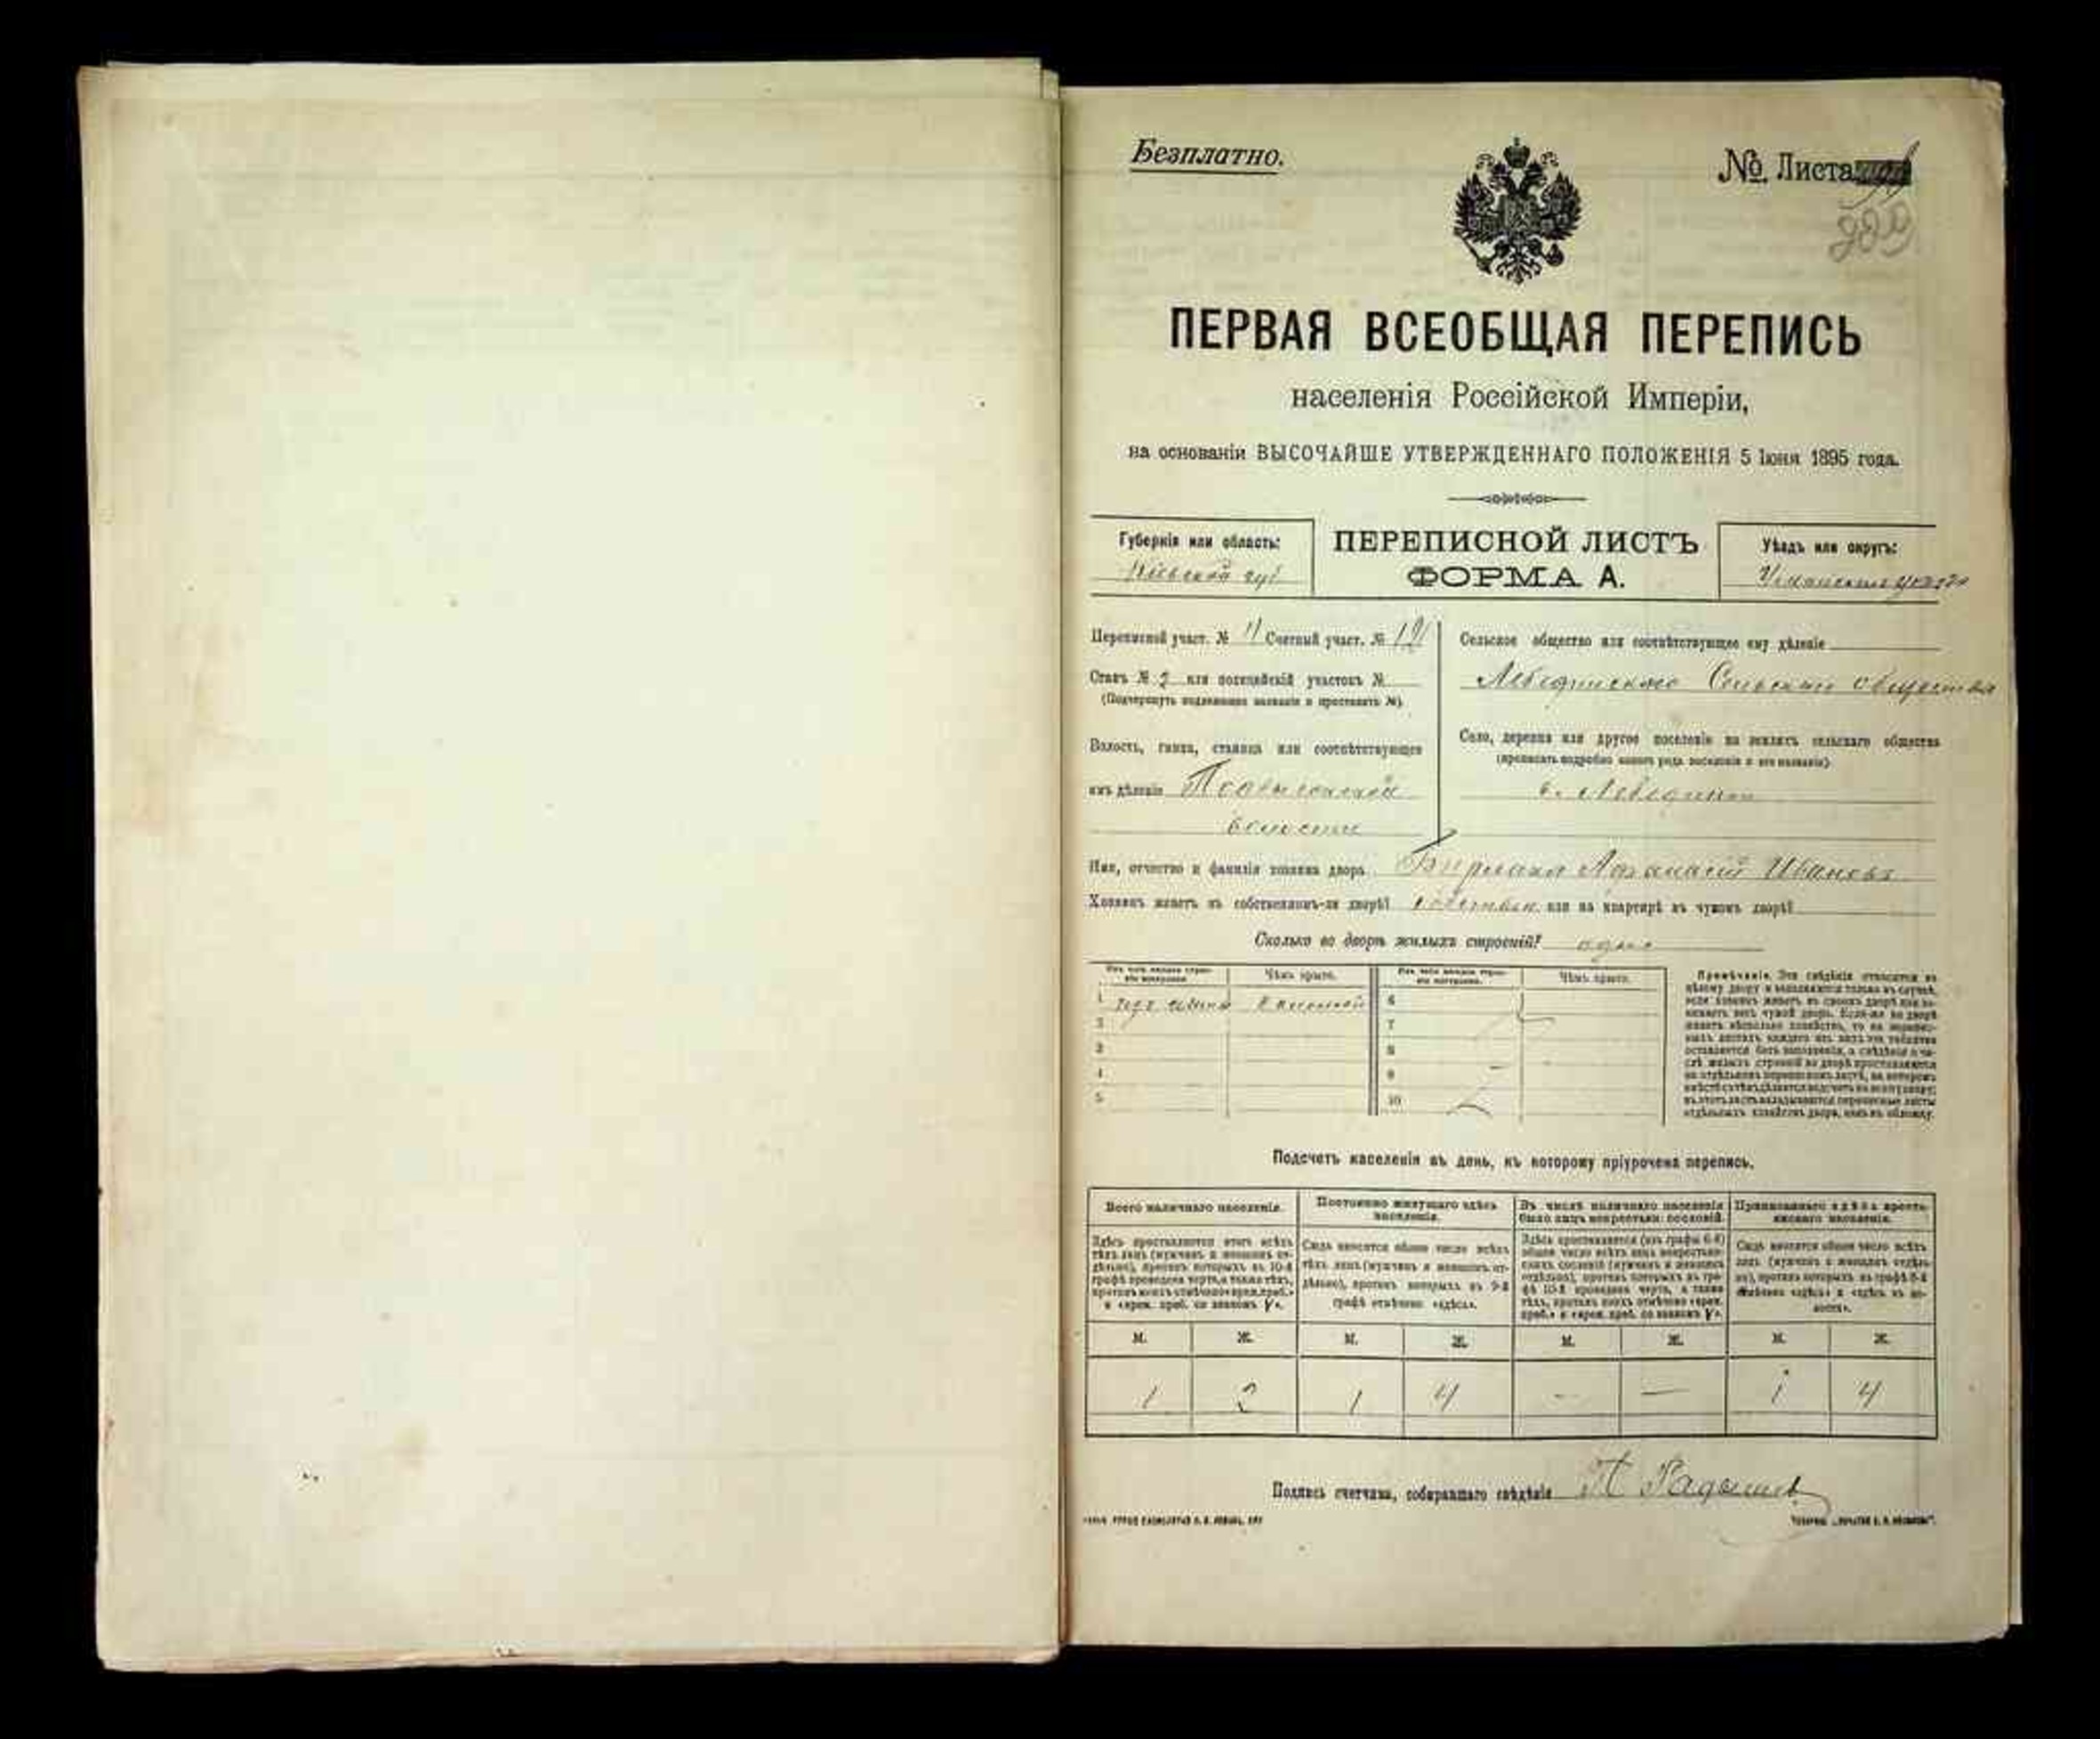 Безплатно.
№ Листа
ПЕРВАЯ ВСЕОБЩАЯ ПЕРЕПИСЬ
населенія Россійской Имперіи,
на основаніи ВЫСОЧАЙШЕ УТВЕРЖДЕННАГО ПОЛОЖЕНІЯ 5 Іюня 1895 года.
Губернія или область:
Кіевская губ
ПЕРЕПИСНОЙ ЛИСТЪ
ФОРМА А.
Уѣздъ или округъ:
Уманскій уѣздъ
Переписной участ. № 11 Счетный участ. №
Станъ № 2 или полицейскій участокъ №
(Подчеркнуть подлежащее названіе и проставить №).
Волость, гмина, станица или соотвѣтствующее
имъ дѣленіе
волости
Сельское общество или соотвѣтствующее ему дѣленіе
Лебединскаго Сельскаго общества
Село, деревня или другое поселеніе на земляхъ сельскаго общества
(прописать подробно какого рода поселеніе и его названіе)
с. Лебединъ
Имя, отчество и фамилія хозяина двора Афанасій Ивановъ
Хозяинъ живетъ въ собственномъ-ли дворѣ? или на квартирѣ въ чужомъ дворѣ?
Сколько во дворѣ жилыхъ строеній? одно
Изъ чего жилыя строенія построены. Чѣмъ крыто. Изъ чего жилыя строенія построены. Чѣмъ крыто.
1 6
2 7
3 8
4 9
5 10
Примѣчаніе. Эти свѣдѣнія относятся къ
цѣлому двору и заполняются только въ случаѣ,
если хозяинъ живетъ въ своемъ дворѣ или за-
нимаетъ весь чужой дворъ. Если-же во дворѣ
имѣетъ нѣсколько хозяйствъ, то на перепис-
ныхъ листахъ каждаго изъ нихъ эта табличка
оставляется безъ заполненія, а свѣдѣнія о чи-
слѣ жилыхъ строеній во дворѣ проставляются
на отдѣльномъ переписномъ листѣ, на которомъ
вмѣстѣ съ тѣмъ дѣлается подсчетъ по всему двору;
въ этотъ листъ вкладываются переписные листы
отдѣльныхъ хозяйствъ двора, какъ въ обложку.
Подсчетъ населенія въ день, къ которому пріурочена перепись.
Всего наличнаго населенія.
Здѣсь проставляется итогъ всѣхъ
тѣхъ лицъ (мужчинъ и женщинъ от-
дѣльно), противъ которыхъ въ 10-й
графѣ проведена черта, а также тѣхъ,
противъ коихъ отмѣчено «врем. преб.»
и «врем. преб. со знакомъ V».
Постоянно живущаго здѣсь
населенія.
Сюда вносится общее число всѣхъ
тѣхъ лицъ (мужчинъ и женщинъ от-
дѣльно), противъ которыхъ въ 9-й
графѣ отмѣчено «здѣсь».
Въ числѣ наличнаго населенія
было лицъ некрестьян. сословій.
Здѣсь проставляется (изъ графы 6-й)
общее число всѣхъ лицъ некрестьян-
скихъ сословій (мужчинъ и женщинъ
отдѣльно), противъ которыхъ въ гра-
фѣ 10-й проведена черта, а также
тѣхъ, противъ коихъ отмѣчено «врем.
преб.» и «врем. преб. со знакомъ V».
Приписаннаго здѣсь кресть-
янскаго населенія.
Сюда вносится общее число всѣхъ
лицъ (мужчинъ и женщинъ отдѣль-
но), противъ которыхъ въ графѣ 8-й
отмѣчено «здѣсь» и «здѣсь въ во-
лости».
М. Ж. М. Ж. М. Ж. М. Ж.
1 2 1 4 — — 1 4
Подпись счетчика, собиравшаго свѣдѣнія